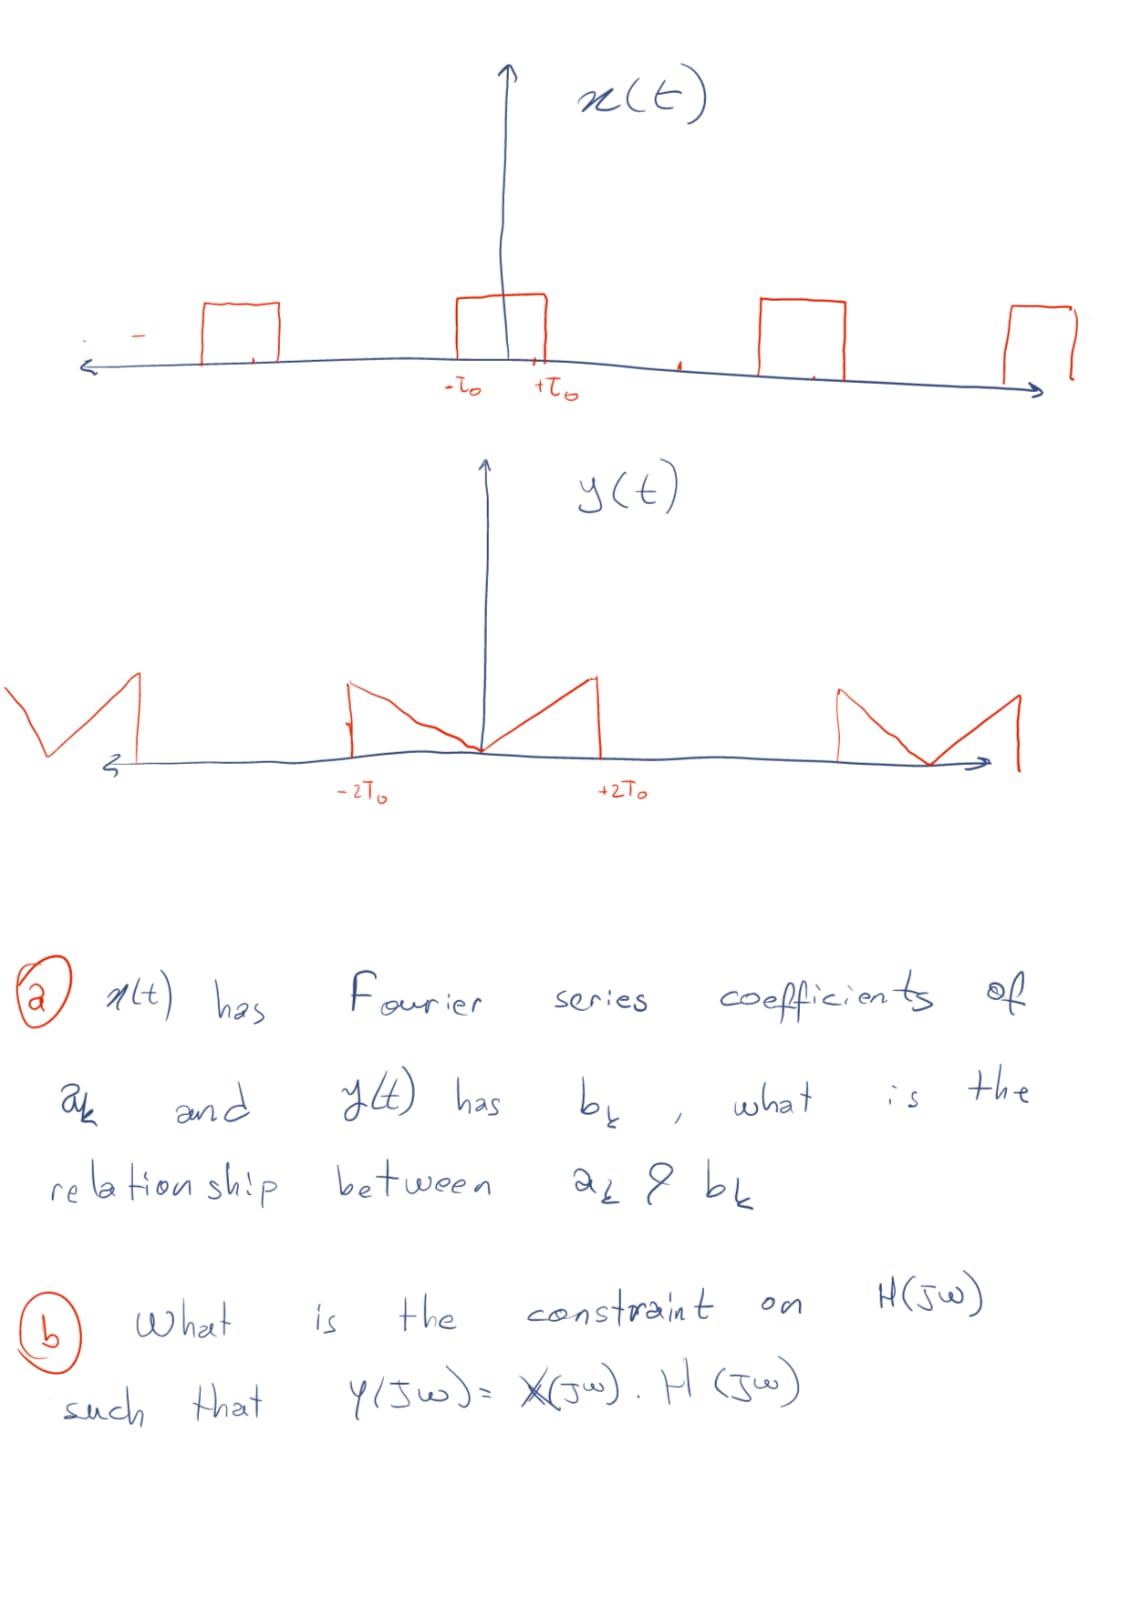 x(t)
-τ₀ +τ₀
y(t)
-2T₀ +2T₀
a x(t) has Fourier series coefficients of
aₖ and y(t) has bₖ , what is the
relationship between aₖ & bₖ
b What is the constraint on H(jω)
such that Y(jω) = X(jω) . H(jω)